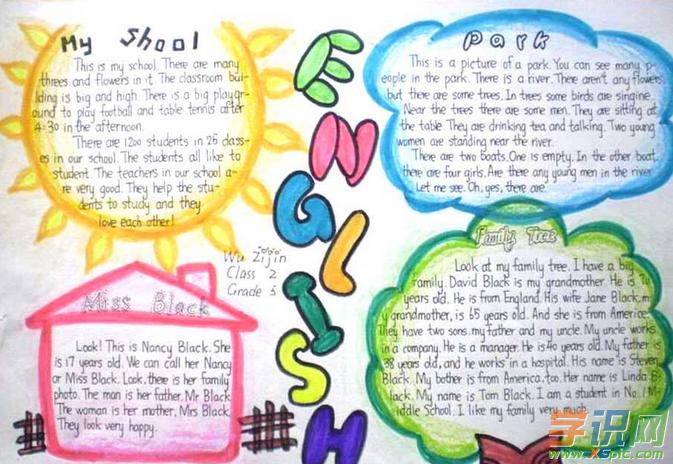 My Shool
This is my school. There are many
threes and flowers in it. The classroom bui-
lding is big and high. There is a big playgr-
ound to play football and table tennis after
4:30 in the afternoon.
There are 1200 students in 25 class-
es in our school. The students all like to
student. The teachers in our school a-
re very good. They help the stu-
dents to study and they
love each other!
ENGLISH
Park
This is a picture of a park. You can see many p-
eople in the park. There is a river. There aren't any flowers,
but there are some trees. In trees some birds are singine.
Near the trees there are some men. They are sitting at
the table. They are drinking tea and talking. Two young
women are standing near the river.
There are two boats. One is empty. In the other boat,
there are four girls. Are there any young men in the river
Let me see. Oh, yes, there are.
Wu Zijin
Class 2
Grade 3
Miss Black
Look! This is Nancy Black. She
is 17 years old. We can call her Nancy
or Miss Black. Look, there is her family
photo. The man is her father, Mr Black.
The woman is her mother, Mrs Black.
They look very happy.
Family Tree
Look at my family tree. I have a big
family. David Black is my grandmother. He is 70
years old. He is from England. His wife Jane Black, my
grandmother, is 65 years old. And she is from America.
They have two sons, my father and my uncle. My uncle works
in a company. He is a manager. He is 40 years old. My father is
38 years old, and he works in a hospital. His name is Steven
Black. My bother is from America, too. Her name is Linda B-
lack. My name is Tom Black. I am a student in No.1 M-
iddle School. I like my family very much.
学识网
www.XSpic.com